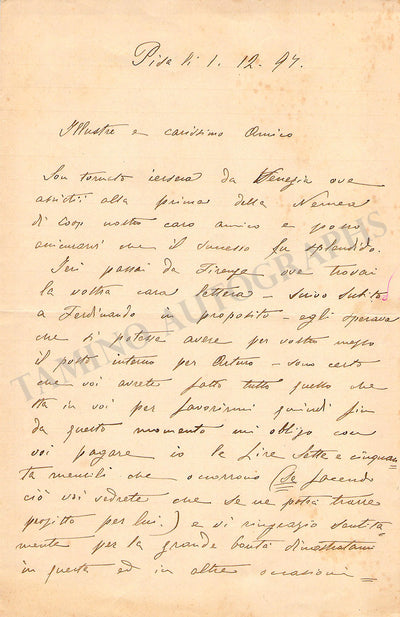 Pisa li 1. 12. 97.
Illustre e carissimo Amico
Son tornato iersera da Venezia ove
assistii alla prima della Nemea
di Coop nostro caro amico e posso
assicurarvi che il successo fu splendido.
Ieri passai da Firenze ove trovai
la vostra cara lettera – scrivo subito
a Ferdinando in proposito – egli sperava
che si potesse avere per vostro mezzo
il posto interno per Arturo – sono certo
che voi avrete fatto tutto quello che
sta in voi per favorirmi quindi fin
da questo momento mi obbligo con
voi pagare io le Lire Sette e cinquan
ta mensili che occorrono (se facendo
ciò voi vedrete che se ne potrà trarre
profitto per lui.) e vi ringrazio sentita
mente per la grande bontà dimostratami
in questa ed in altre occasioni =
TAMINO AUTOGRAPHS